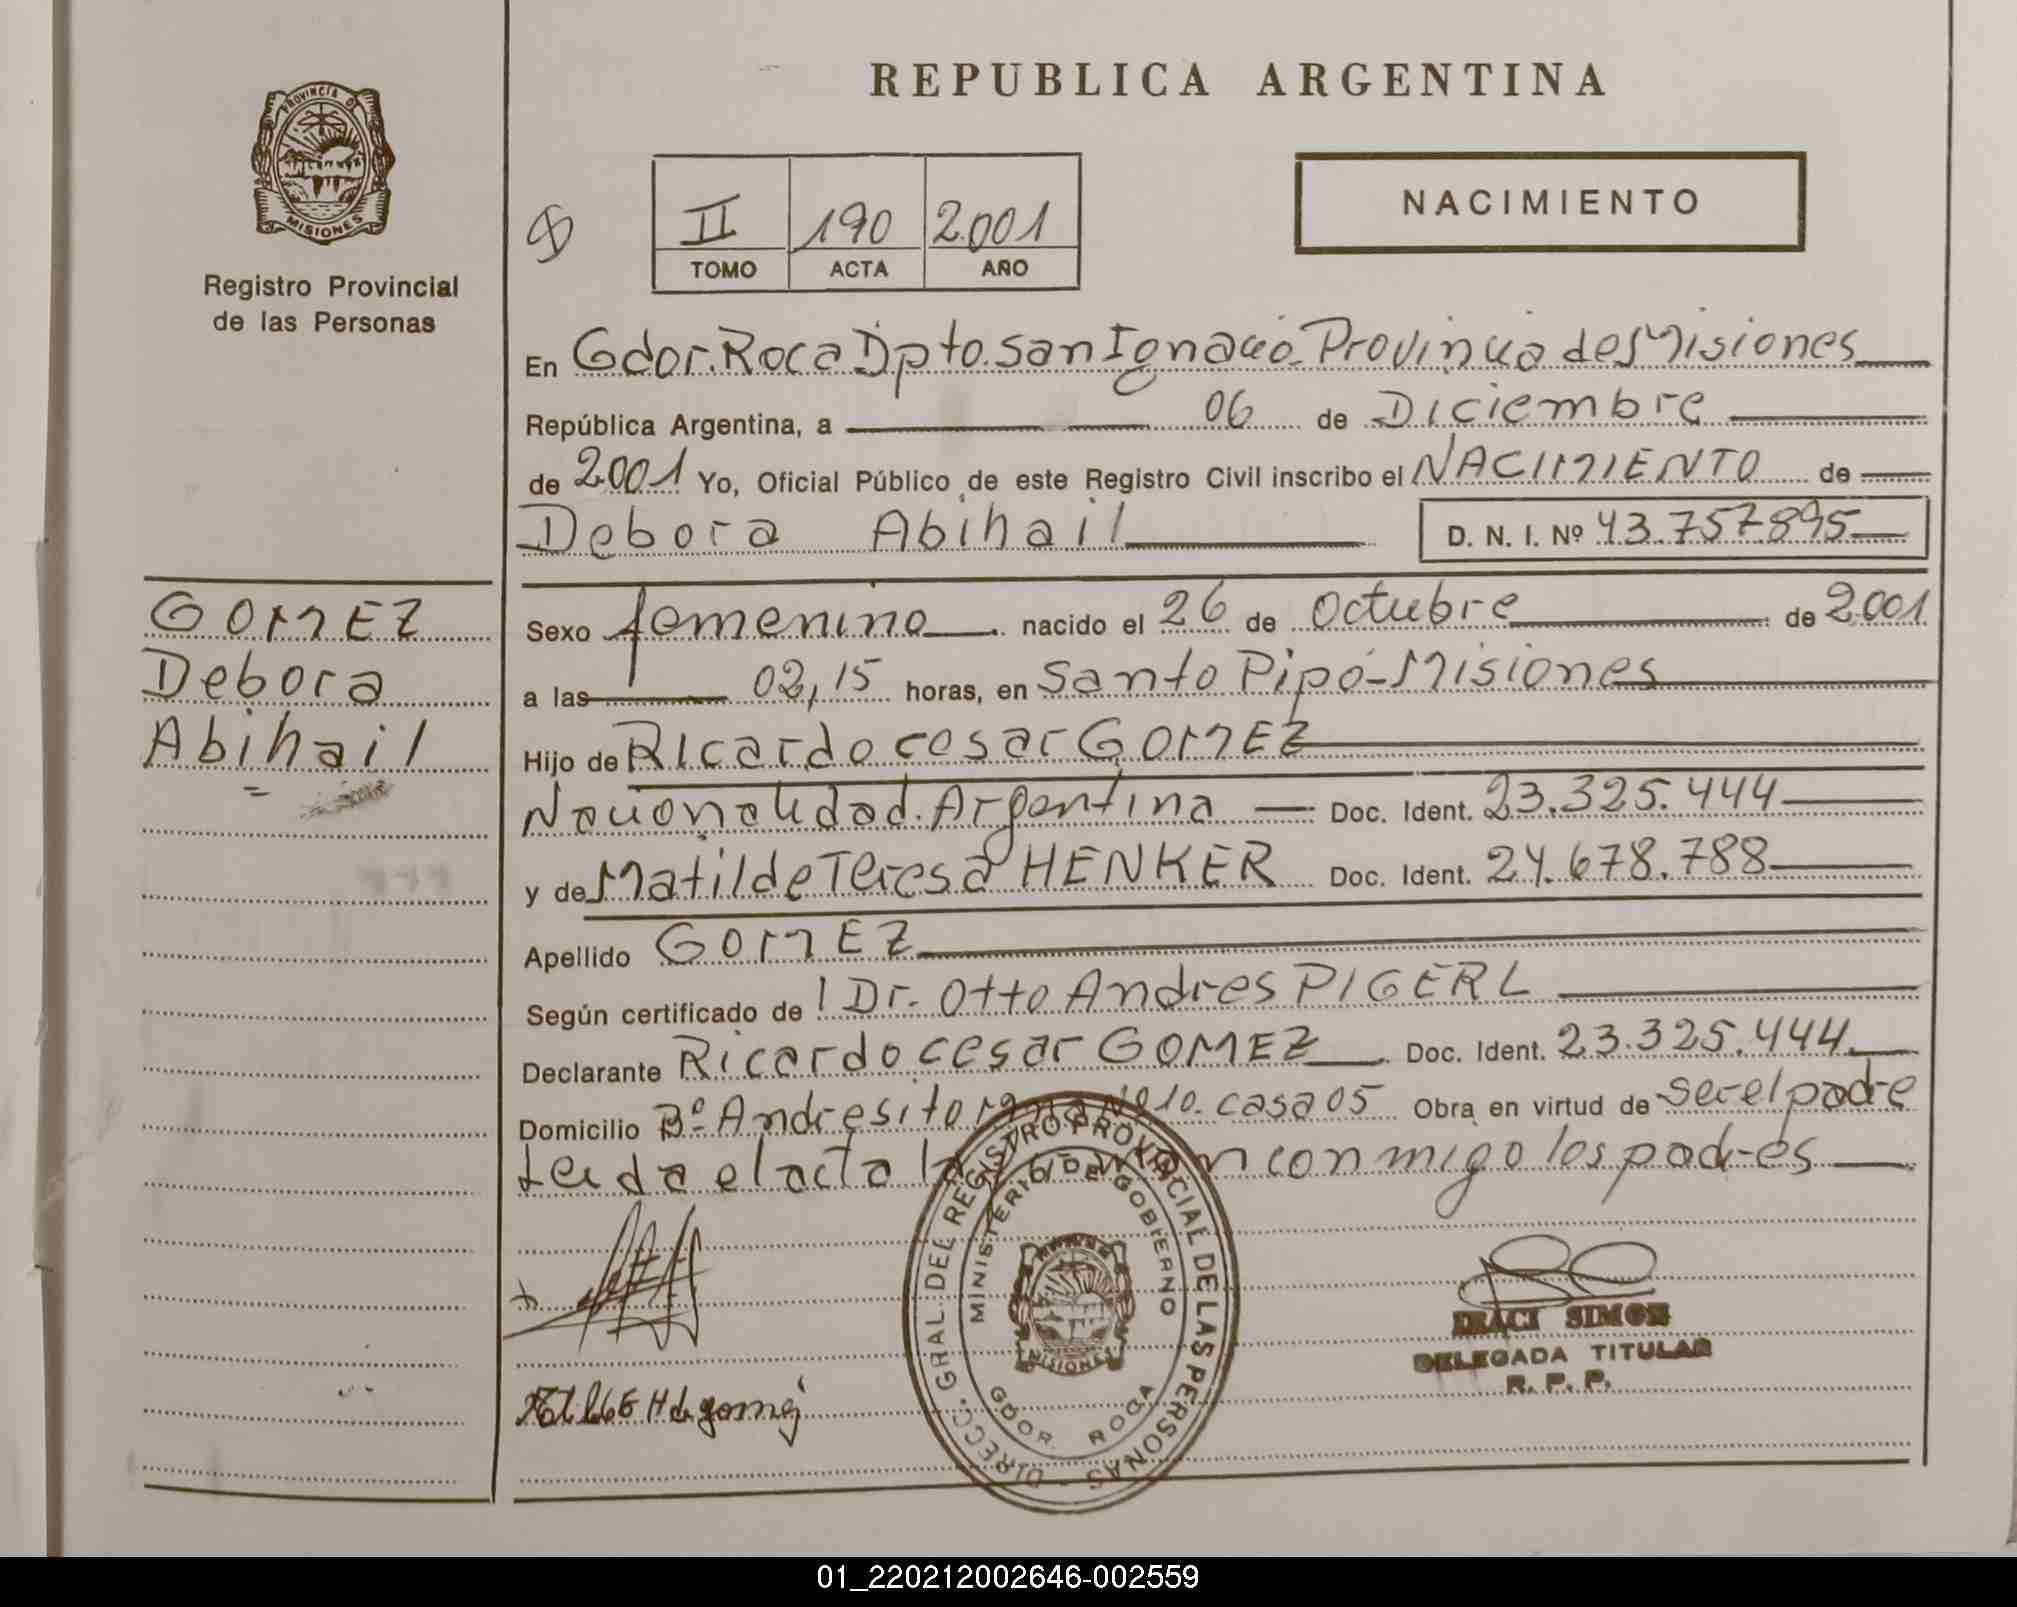 REPUBLICA ARGENTINA
PROVINCIA DE
MISIONES
Registro Provincial
de las Personas
II 190 2.001
TOMO ACTA AÑO
NACIMIENTO
En Gdor. Roca Dpto. San Ignacio Provincia de Misiones
República Argentina, a 06 de Diciembre
de 2.001 Yo, Oficial Público de este Registro Civil inscribo el NACIMIENTO de
Debora Abihail D. N. I. Nº 43.757895
GOMEZ
Debora
Abihail
Sexo femenino nacido el 26 de Octubre de 2.001
a las 02,15 horas, en Santo Pipó-Misiones
Hijo de Ricardo cesar GOMEZ
Nacionalidad Argentina Doc. Ident. 23.325.444
y de Matilde Teresa HENKER Doc. Ident. 24.678.788
Apellido GOMEZ
Según certificado de l Dr. Otto Andres PIGERL
Declarante Ricardo cesar GOMEZ Doc. Ident. 23.325.444
Domicilio Bº Andresito Nº10. casa 05 Obra en virtud de ser el padre
Leida el acta la conmigo los padres
DIRECC. GRAL. DEL REGISTRO PROVINCIAL DE LAS PERSONAS
MINISTERIO DE GOBIERNO
MISIONES
GDOR. ROCA
IRACI SIMON
DELEGADA TITULAR
R. P. P.
H de gomez
01_220212002646-002559